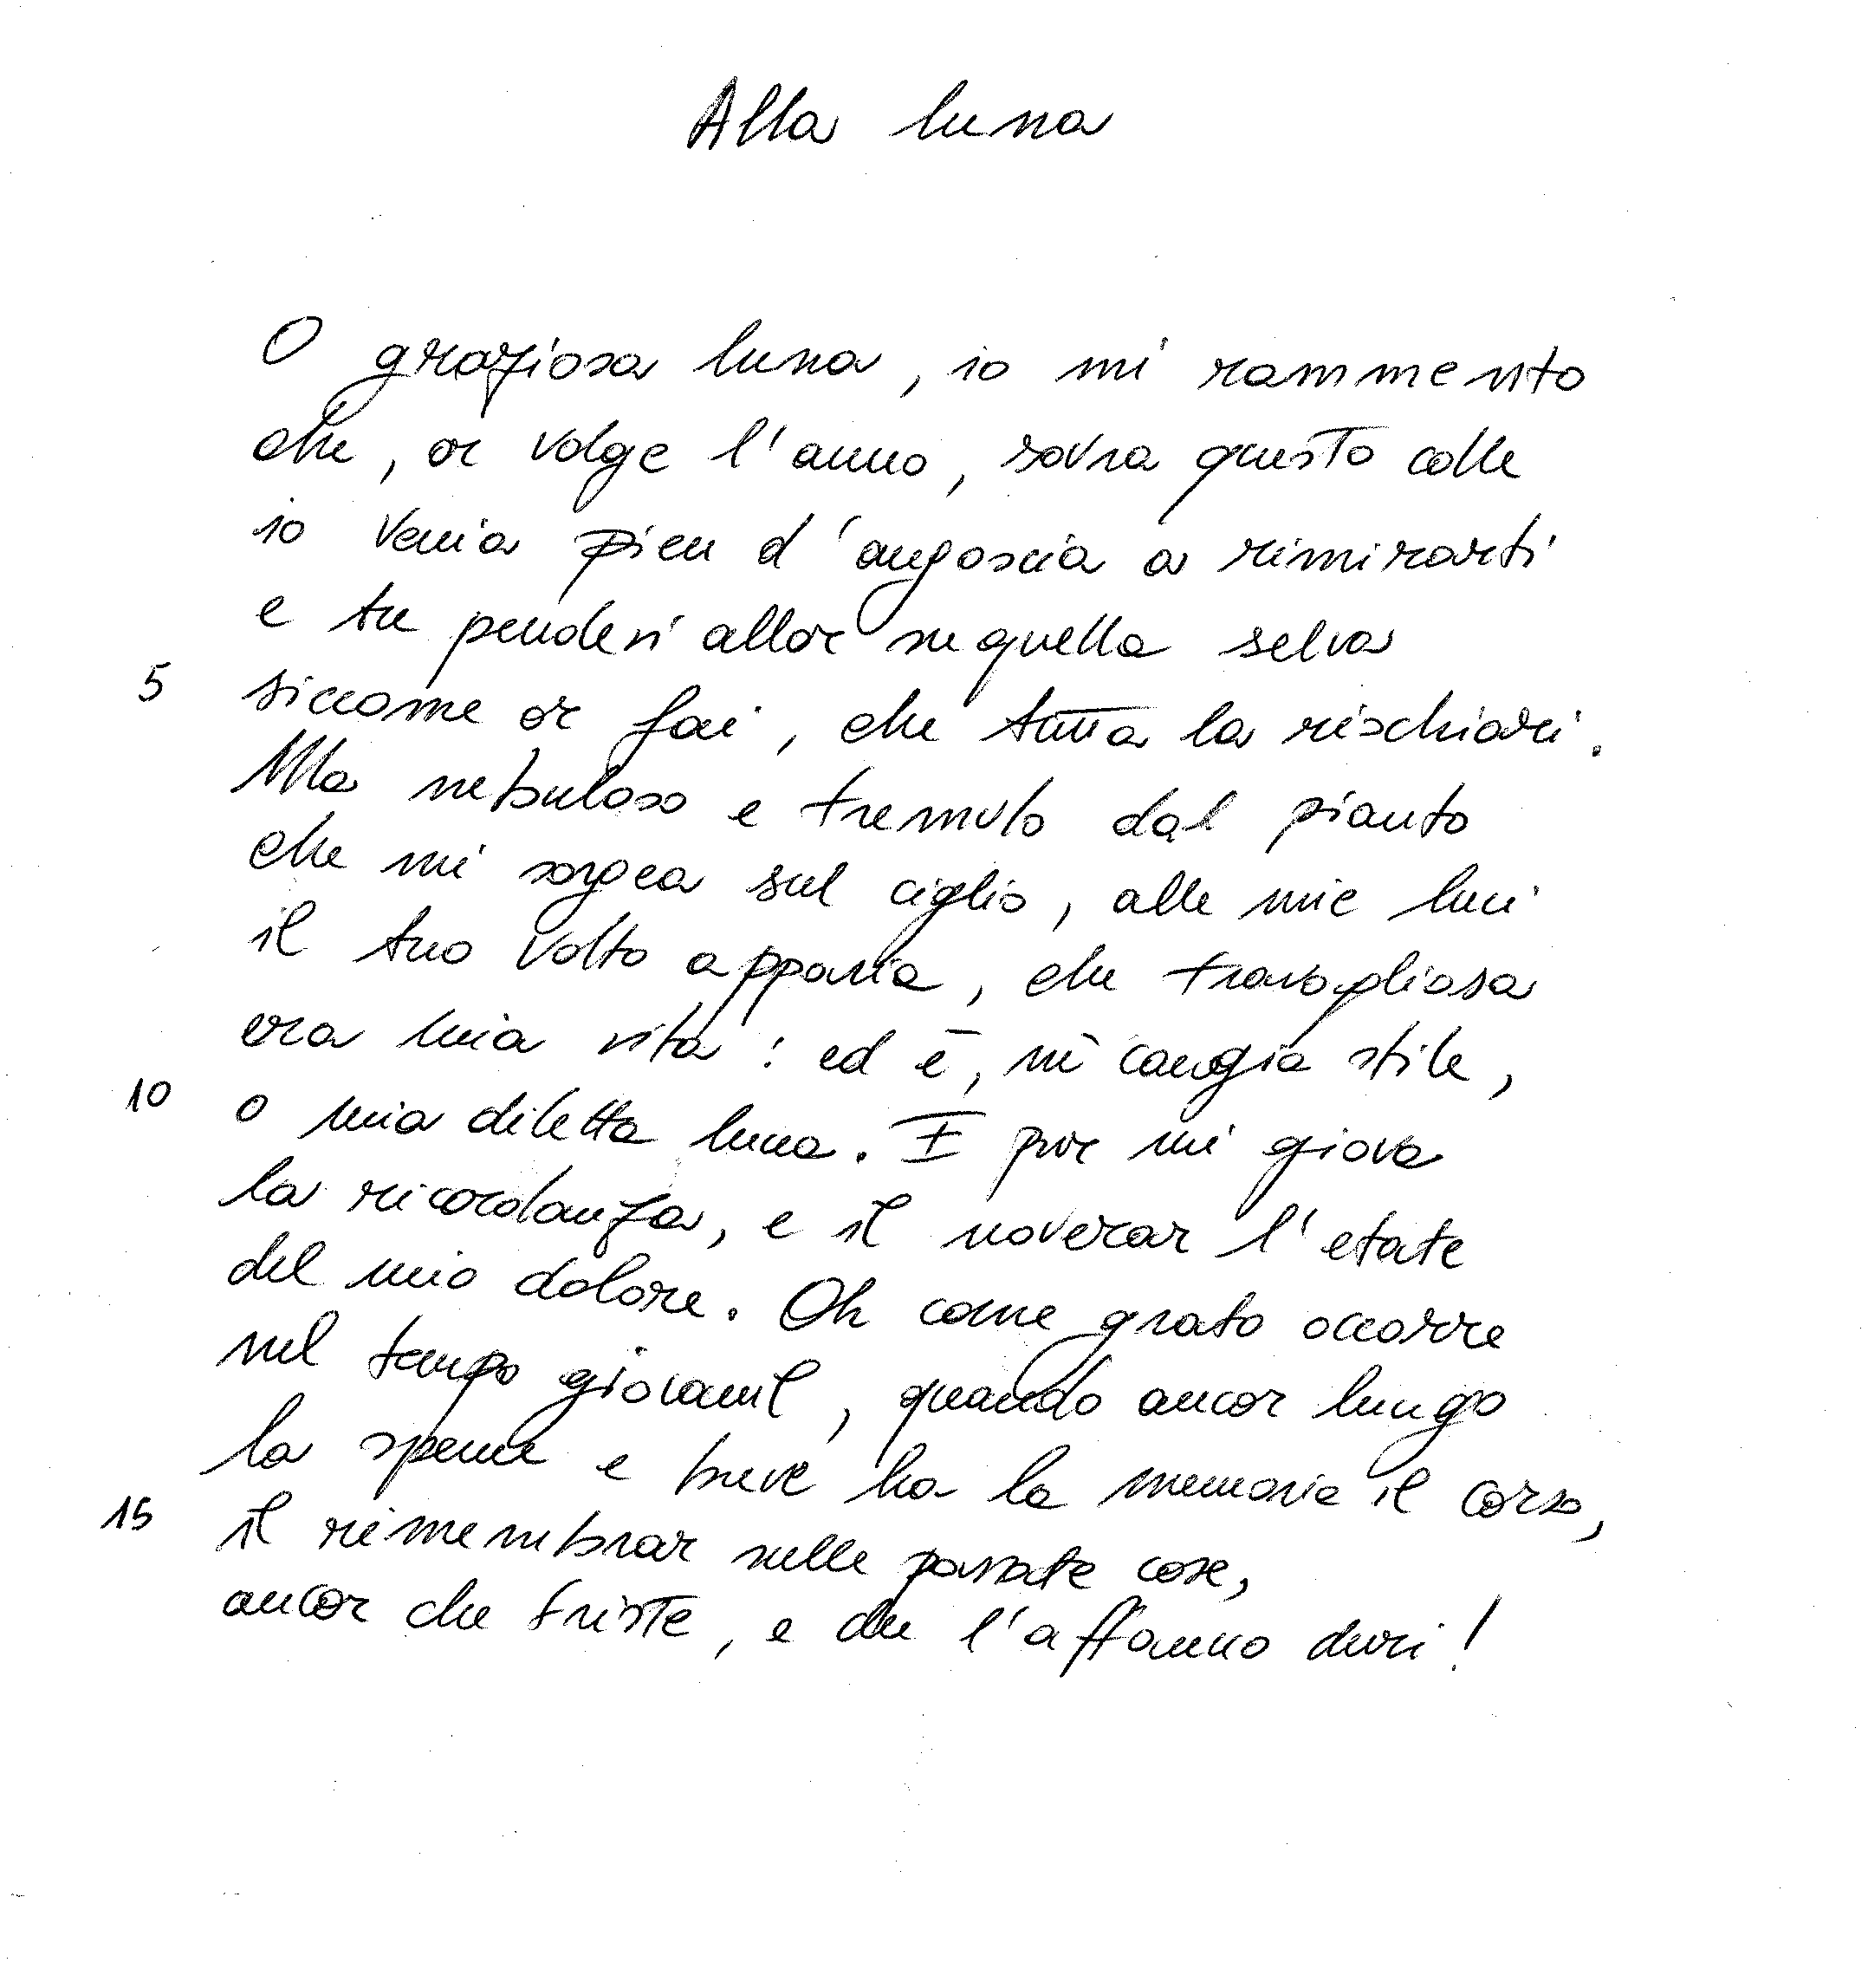 Alla luna
O graziosa luna, io mi rammento
che, or volge l'anno, sovra questo colle
io venia pien d'angoscia a rimirarti
e tu pendevi allor su quella selva
5 siccome or fai, che tutta la rischiari.
Ma nebuloso e tremulo dal pianto
che mi sorgea sul ciglio, alle mie luci
il tuo volto apparia, che travagliosa
era mia vita: ed è, né cangia stile,
10 o mia diletta luna. E pur mi giova
la ricordanza, e il noverar l'etate
del mio dolore. Oh come grato occorre
nel tempo giovanil, quando ancor lungo
la speme e breve ha la memoria il corso,
15 il rimembrar nelle passate cose,
ancor che triste, e che l'affanno duri!